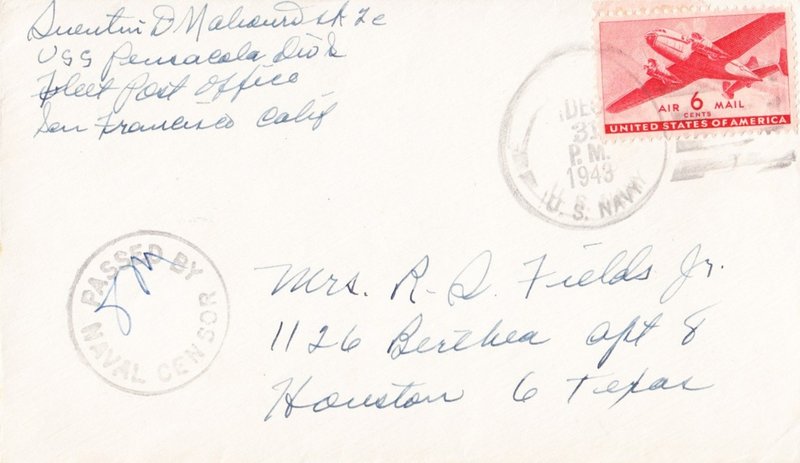 Quentin D Mahourd SK 2c
USS Pensacola Div S
Fleet Post Office
San Francisco Calif
AIR 6 MAIL
CENTS
UNITED STATES OF AMERICA
DEC
31
P.M.
1943
U.S. NAVY
PASSED BY
NAVAL CENSOR
Mrs. R. S. Fields Jr.
1126 Berthea apt 8
Houston 6 Texas